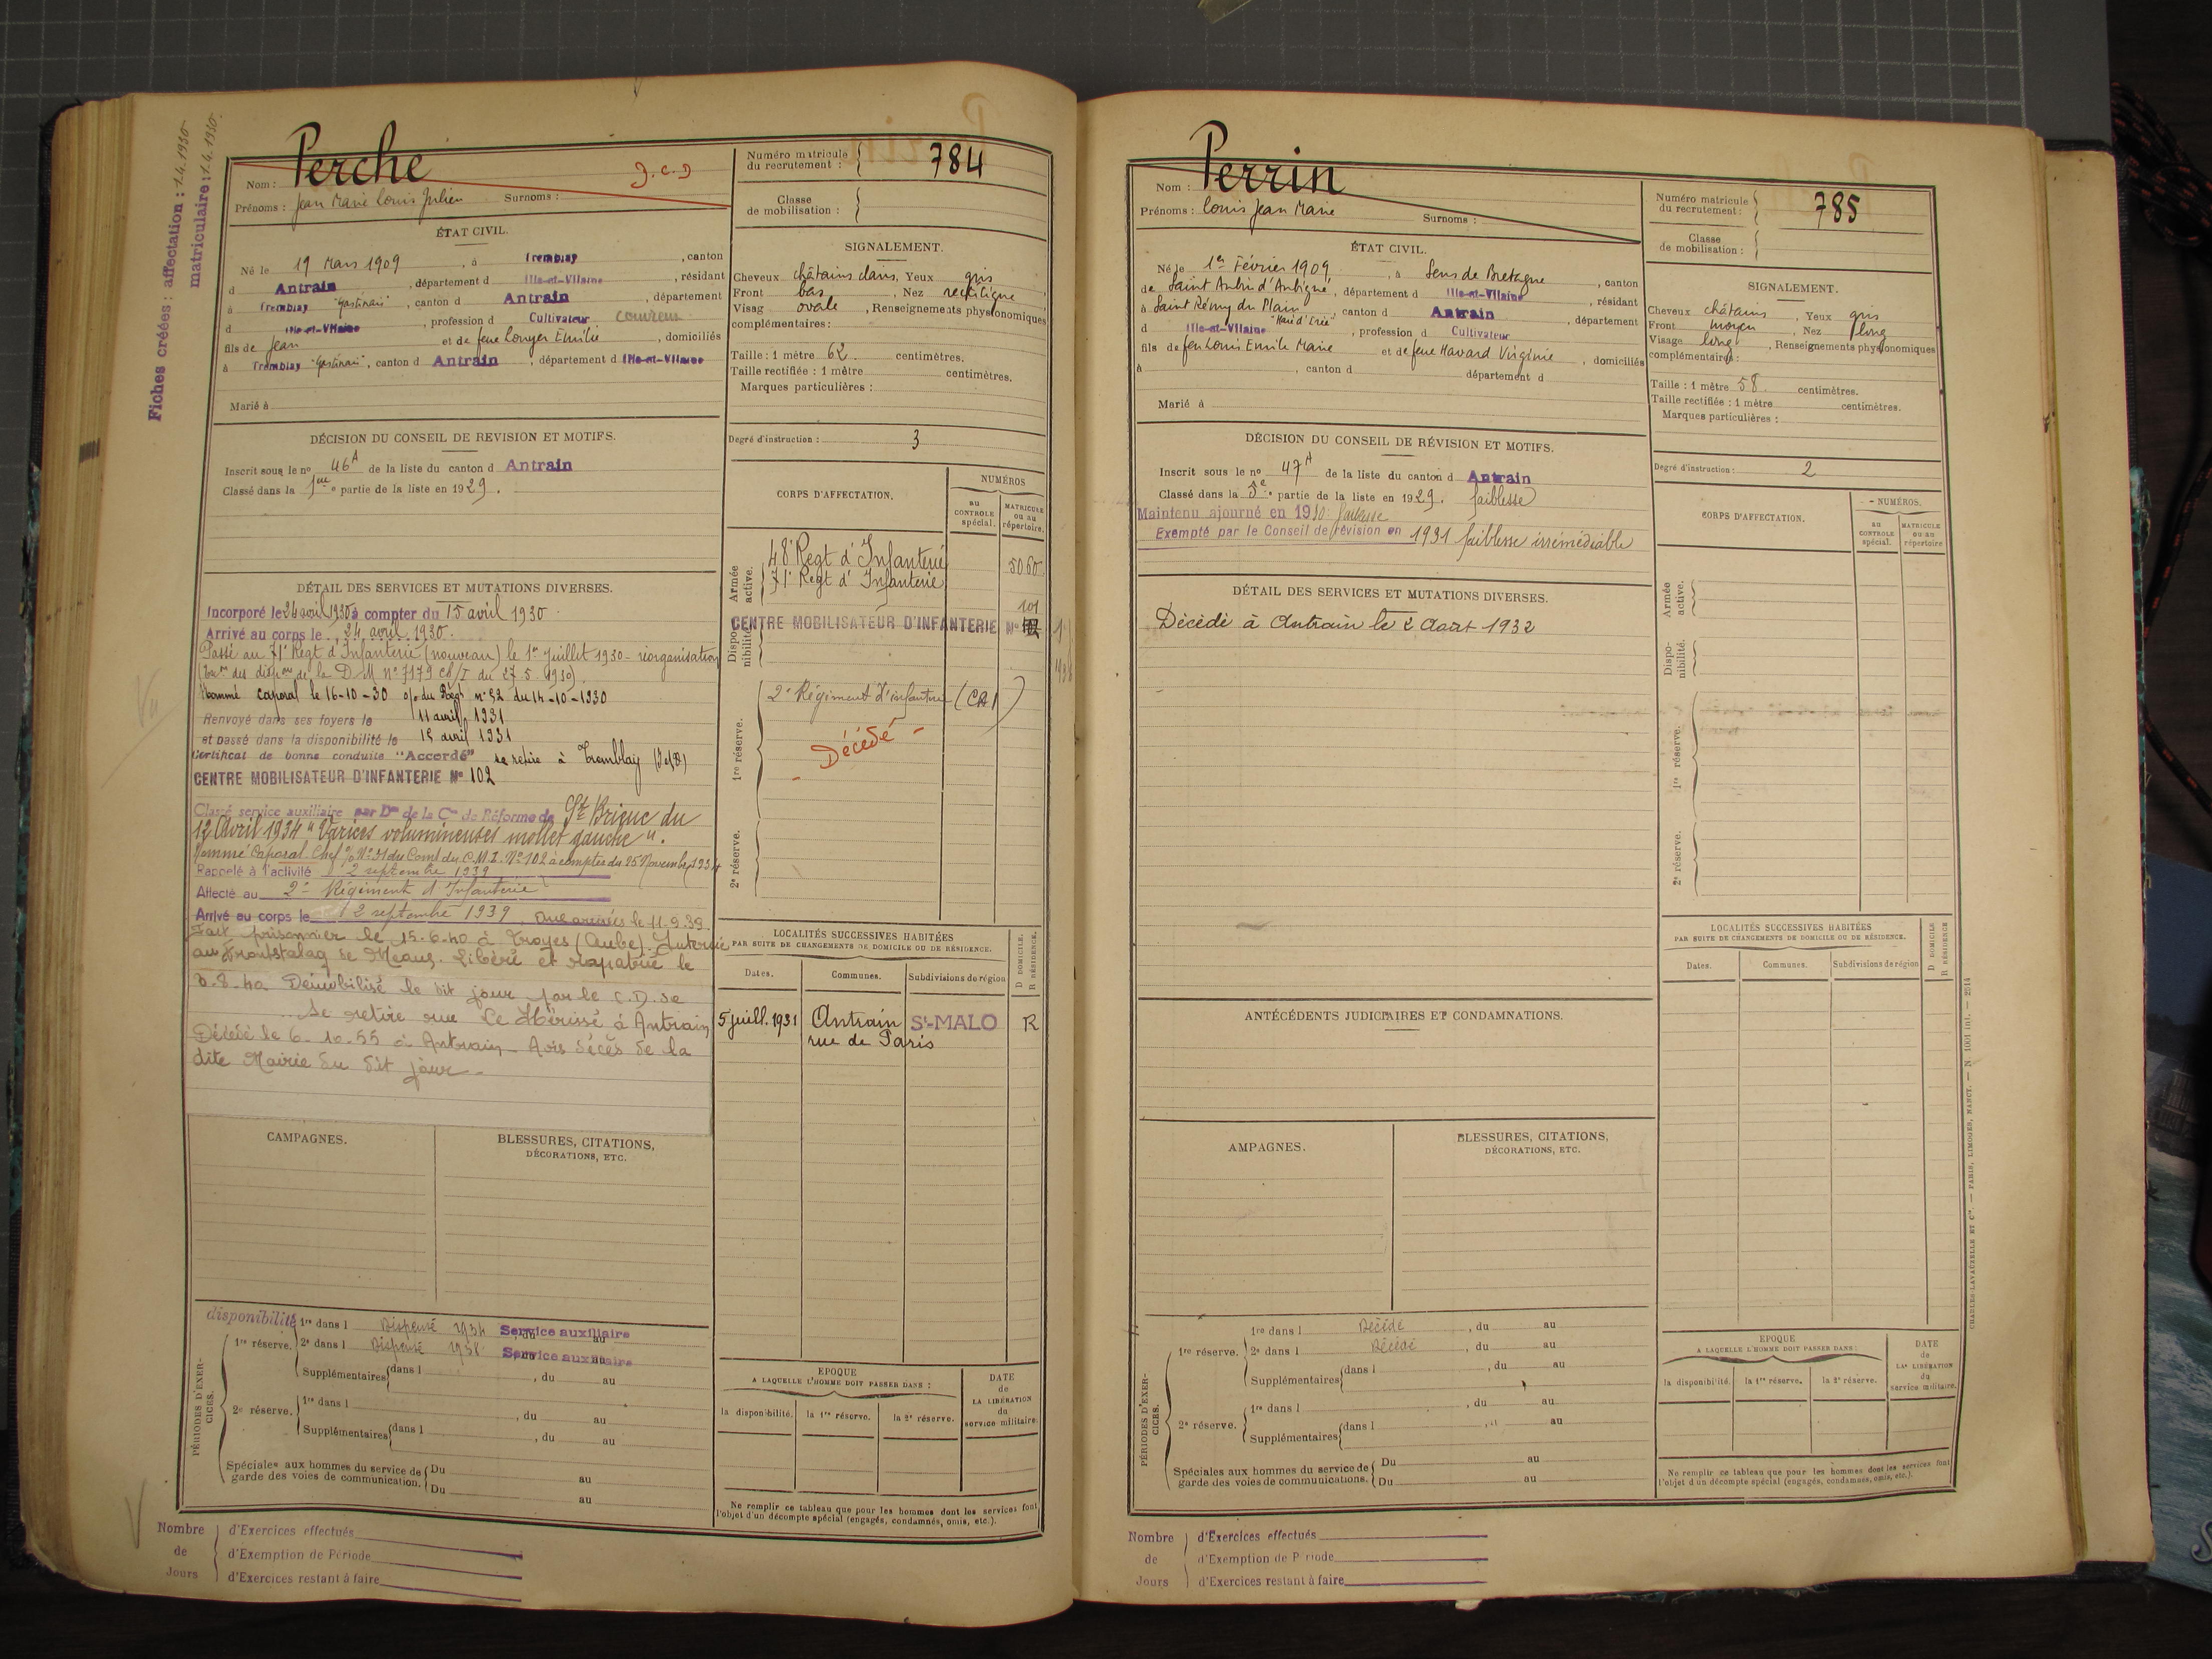 Fiches créées : affectation : 1.4.1930
matriculaire : 1.4.1930
Nom : Perche
J.C.D
Prénoms : Jean Marie Louis Julien Surnoms :
ÉTAT CIVIL.
Né le 19 Mars 1909, à Tremblay, canton
d Antrain, département d Ille-et-Vilaine, résidant
à Tremblay, canton d Antrain, département
d Ille-et-Vilaine, profession d Cultivateur
fils de Jean et de feue Louyer Emilie, domiciliés
à Tremblay, canton d Antrain, département d Ille-et-Vilaine
Marié à
DÉCISION DU CONSEIL DE REVISION ET MOTIFS.
Inscrit sous le no 46A de la liste du canton d Antrain
Classé dans la 1ere partie de la liste en 1929.
DÉTAIL DES SERVICES ET MUTATIONS DIVERSES.
Incorporé le 24 avril 1930 à compter du 15 avril 1930
Arrivé au corps le 24 avril 1930.
Passé au 71e Regt d'Infanterie (nouveau) le 1er Juillet 1930 - réorganisation
de la D.M. n° 7179 du 27.5.1930).
Nommé caporal le 16-10-30 o/o du Régt n° 52 du 14-10-1930
Renvoyé dans ses foyers le 11 avril 1931
et passé dans la disponibilité le 15 avril 1931
Certificat de bonne conduite "Accordé" se retire à Tremblay (I et V)
CENTRE MOBILISATEUR D'INFANTERIE No 102
Classé service auxiliaire par Don de la Con de Réforme de St Brieuc du
12 Avril 1934 "Varices volumineuses mollet gauche".
Nommé Caporal-Chef o/o No 31 du Comt du C.M.I. No 102 à compter du 25 Novembre 1934
Rappelé à l'activité 2 septembre 1939
Affecté au 2e Régiment d'Infanterie
Arrivé au corps le 2 septembre 1939. Aux armées le 11.9.39
Fait prisonnier le 15.6.40 à Troyes (Aube). Interné
au Frontstalag de Meaux. Libéré et rapatrié le
8.40 Démobilisé le dit jour par le C.D. de
Se retire rue Le Hérissé à Antrain
Décédé le 6.10.55 à Antrain - Avis décès de la
dite Mairie du dit jour -
CAMPAGNES.
BLESSURES, CITATIONS,
DÉCORATIONS, ETC.
PÉRIODES D'EXERCICES.
disponibilité
1re réserve. 1re dans l Dispensé 1934 Service auxiliaire, du au
2e dans l Dispensé 1938 Service auxiliaire, du au
Supplémentaires dans l , du au
2e réserve. 1re dans l , du au
Supplémentaires dans l , du au
Spéciales aux hommes du service de Du au
garde des voies de communication. Du au
Nombre de Jours
d'Exercices effectués
d'Exemption de Période
d'Exercices restant à faire
Numéro matricule
du recrutement : 784
Classe
de mobilisation :
SIGNALEMENT.
Cheveux châtains clairs, Yeux gris
Front bas, Nez rectiligne
Visag ovale, Renseignements physionomiques
complémentaires :
Taille : 1 mètre 62 centimètres.
Taille rectifiée : 1 mètre centimètres.
Marques particulières :
Degré d'instruction : 3
CORPS D'AFFECTATION.
NUMÉROS
au CONTROLE spécial.
MATRICULE ou au répertoire.
Armée active.
48e Regt d'Infanterie 5060
71e Regt d'Infanterie
101
Disponibilité
CENTRE MOBILISATEUR D'INFANTERIE No
1re réserve.
2e Régiment d'infanterie (CA1)
- Décédé -
2e réserve.
LOCALITÉS SUCCESSIVES HABITÉES
PAR SUITE DE CHANGEMENTS DE DOMICILE OU DE RÉSIDENCE.
D DOMICILE.
R RÉSIDENCE.
Dates. Communes. Subdivisions de région
5 juill. 1931 Antrain St-MALO R
rue de Paris
EPOQUE
A LAQUELLE L'HOMME DOIT PASSER DANS :
DATE
de
LA LIBÉRATION
du
service militaire.
la disponibilité. la 1re réserve. la 2e réserve.
Ne remplir ce tableau que pour les hommes dont les services font
l'objet d'un décompte spécial (engagés, condamnés, omis, etc.).
Nom : Perrin
Prénoms : Louis Jean Marie Surnoms :
ÉTAT CIVIL.
Né le 1er Février 1909, à Sens de Bretagne, canton
de Saint Aubin d'Aubigné, département d Ille-et-Vilaine, résidant
à Saint Rémy du Plain, canton d Antrain, département
d Ille-et-Vilaine, profession d Cultivateur
fils de feu Louis Emile Marie et de feue Havard Virginie, domiciliés
à , canton d département d
Marié à
DÉCISION DU CONSEIL DE RÉVISION ET MOTIFS.
Inscrit sous le no 47A de la liste du canton d Antrain
Classé dans la 3e partie de la liste en 1929. faiblesse
Maintenu ajourné en 1930 faiblesse
Exempté par le Conseil de révision en 1931 faiblesse irrémédiable
DÉTAIL DES SERVICES ET MUTATIONS DIVERSES.
Décédé à Antrain le 2 Août 1932
ANTÉCÉDENTS JUDICIAIRES ET CONDAMNATIONS.
AMPAGNES.
BLESSURES, CITATIONS,
DÉCORATIONS, ETC.
PÉRIODES D'EXERCICES.
1re réserve. 1re dans l Décédé, du au
2e dans l Décédé, du au
Supplémentaires dans l , du au
2e réserve. 1re dans l , du au
Supplémentaires dans l , du au
Spéciales aux hommes du service de Du au
garde des voies de communications. Du au
Nombre de Jours
d'Exercices effectués
d'Exemption de Période
d'Exercices restant à faire
Numéro matricule
du recrutement : 785
Classe
de mobilisation :
SIGNALEMENT.
Cheveux châtains, Yeux gris
Front moyen, Nez long
Visage long, Renseignements physionomiques
complémentaires :
Taille : 1 mètre 58 centimètres.
Taille rectifiée : 1 mètre centimètres.
Marques particulières :
Degré d'instruction : 2
CORPS D'AFFECTATION.
NUMÉROS.
au CONTROLE spécial.
MATRICULE ou au répertoire
Armée active.
Disponibilité.
1re réserve.
2e réserve.
LOCALITÉS SUCCESSIVES HABITÉES
PAR SUITE DE CHANGEMENTS DE DOMICILE OU DE RÉSIDENCE.
D DOMICILE
R RÉSIDENCE
Dates. Communes. Subdivisions de région
EPOQUE
A LAQUELLE L'HOMME DOIT PASSER DANS :
DATE
de
LA LIBÉRATION
du
service militaire.
la disponibilité. la 1re réserve. la 2e réserve.
Ne remplir ce tableau que pour les hommes dont les services font
l'objet d'un décompte spécial (engagés, condamnés, omis, etc.).
CHARLES-LAVAUZELLE ET Cie. — PARIS, LIMOGES, NANCY. — N 1001 int. — 2514